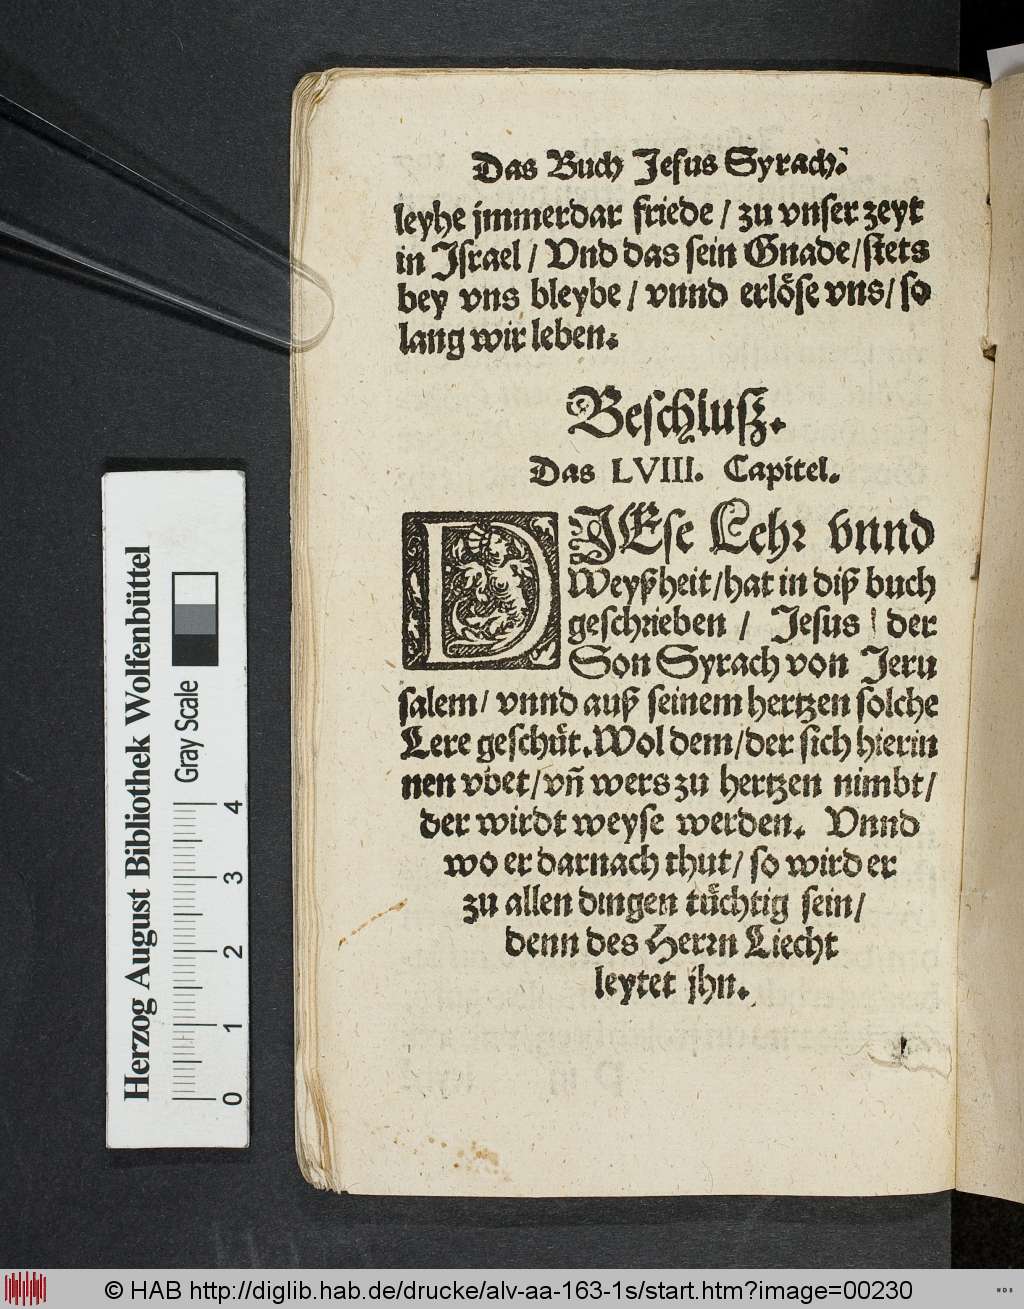 Das Buch Jesus Syrach.
leyhe jmmerdar friede / zu vnser zeyt
in Israel / Vnd das sein Gnade / stets
bey vns bleybe / vnnd erlöse vns / so
lang wir leben.
Beschlusz.
Das LVIII. Capitel.
DIEse Lehr vnnd
Weyßheit / hat in diß buch
geschrieben / Jesus / der
Son Syrach von Jeru
salem / vnnd auß seinem hertzen solche
Lere geschüt. Wol dem / der sich hierin
nen vbet / vñ wers zu hertzen nimbt /
der wirdt weyse werden. Vnnd
wo er darnach thut / so wird er
zu allen dingen tüchtig sein /
denn des Herrn Liecht
leytet jhn.
Herzog August Bibliothek Wolfenbüttel
Gray Scale
0 1 2 3 4
© HAB http://diglib.hab.de/drucke/alv-aa-163-1s/start.htm?image=00230